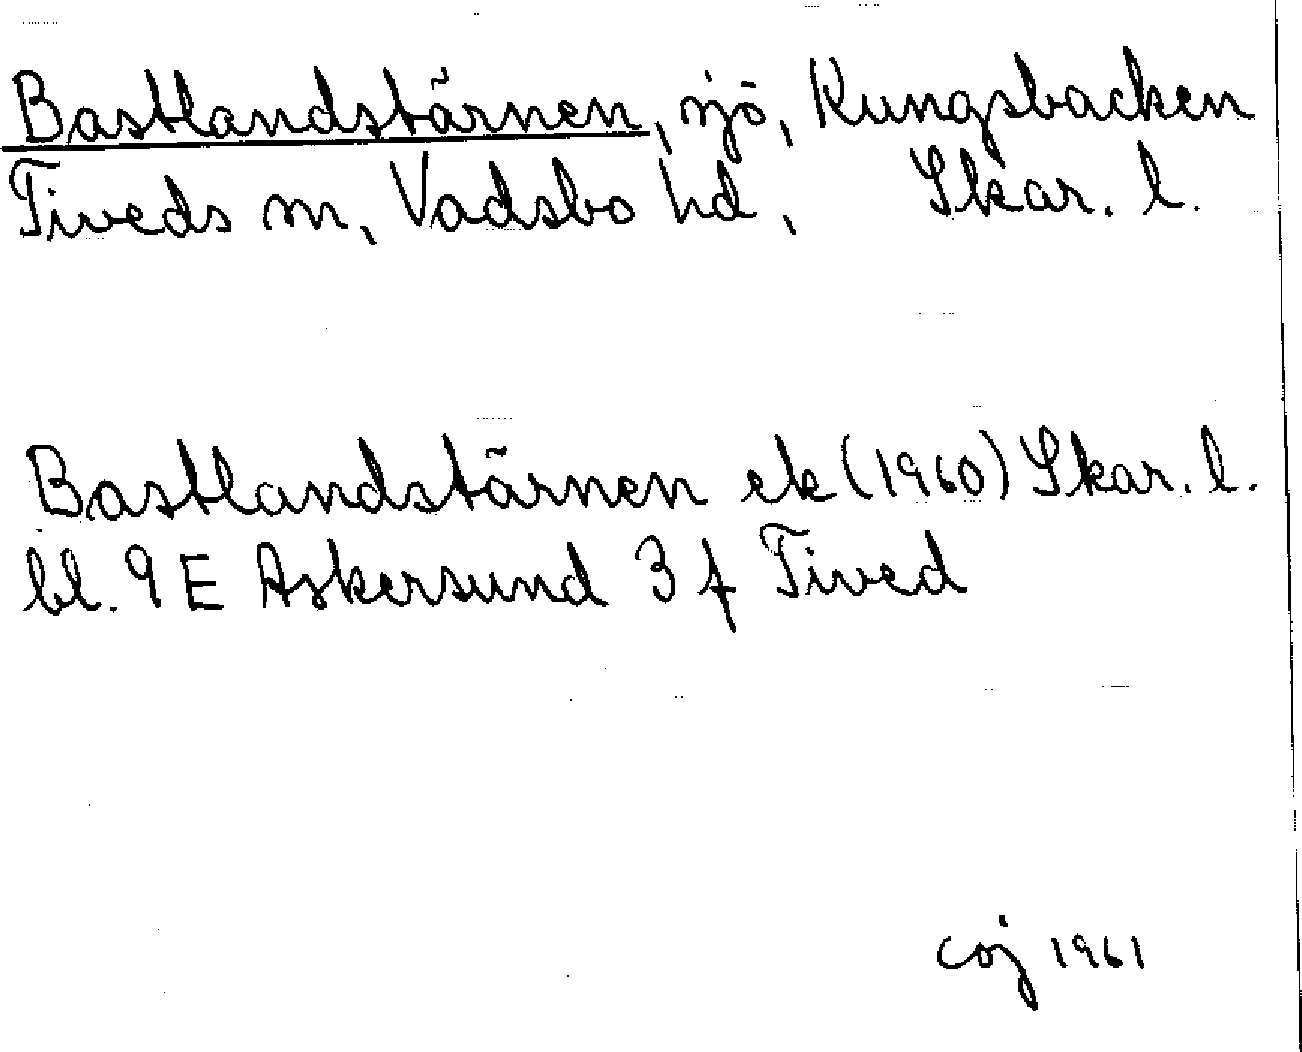 Bastlandstärnen, sjö, Kungsbacken
Tiveds sn, Vadsbo hd, Skar. l.
Bastlandstärnen ek (1960) Skar. l.
bl. 9E Askersund 3f Tived
COJ 1961